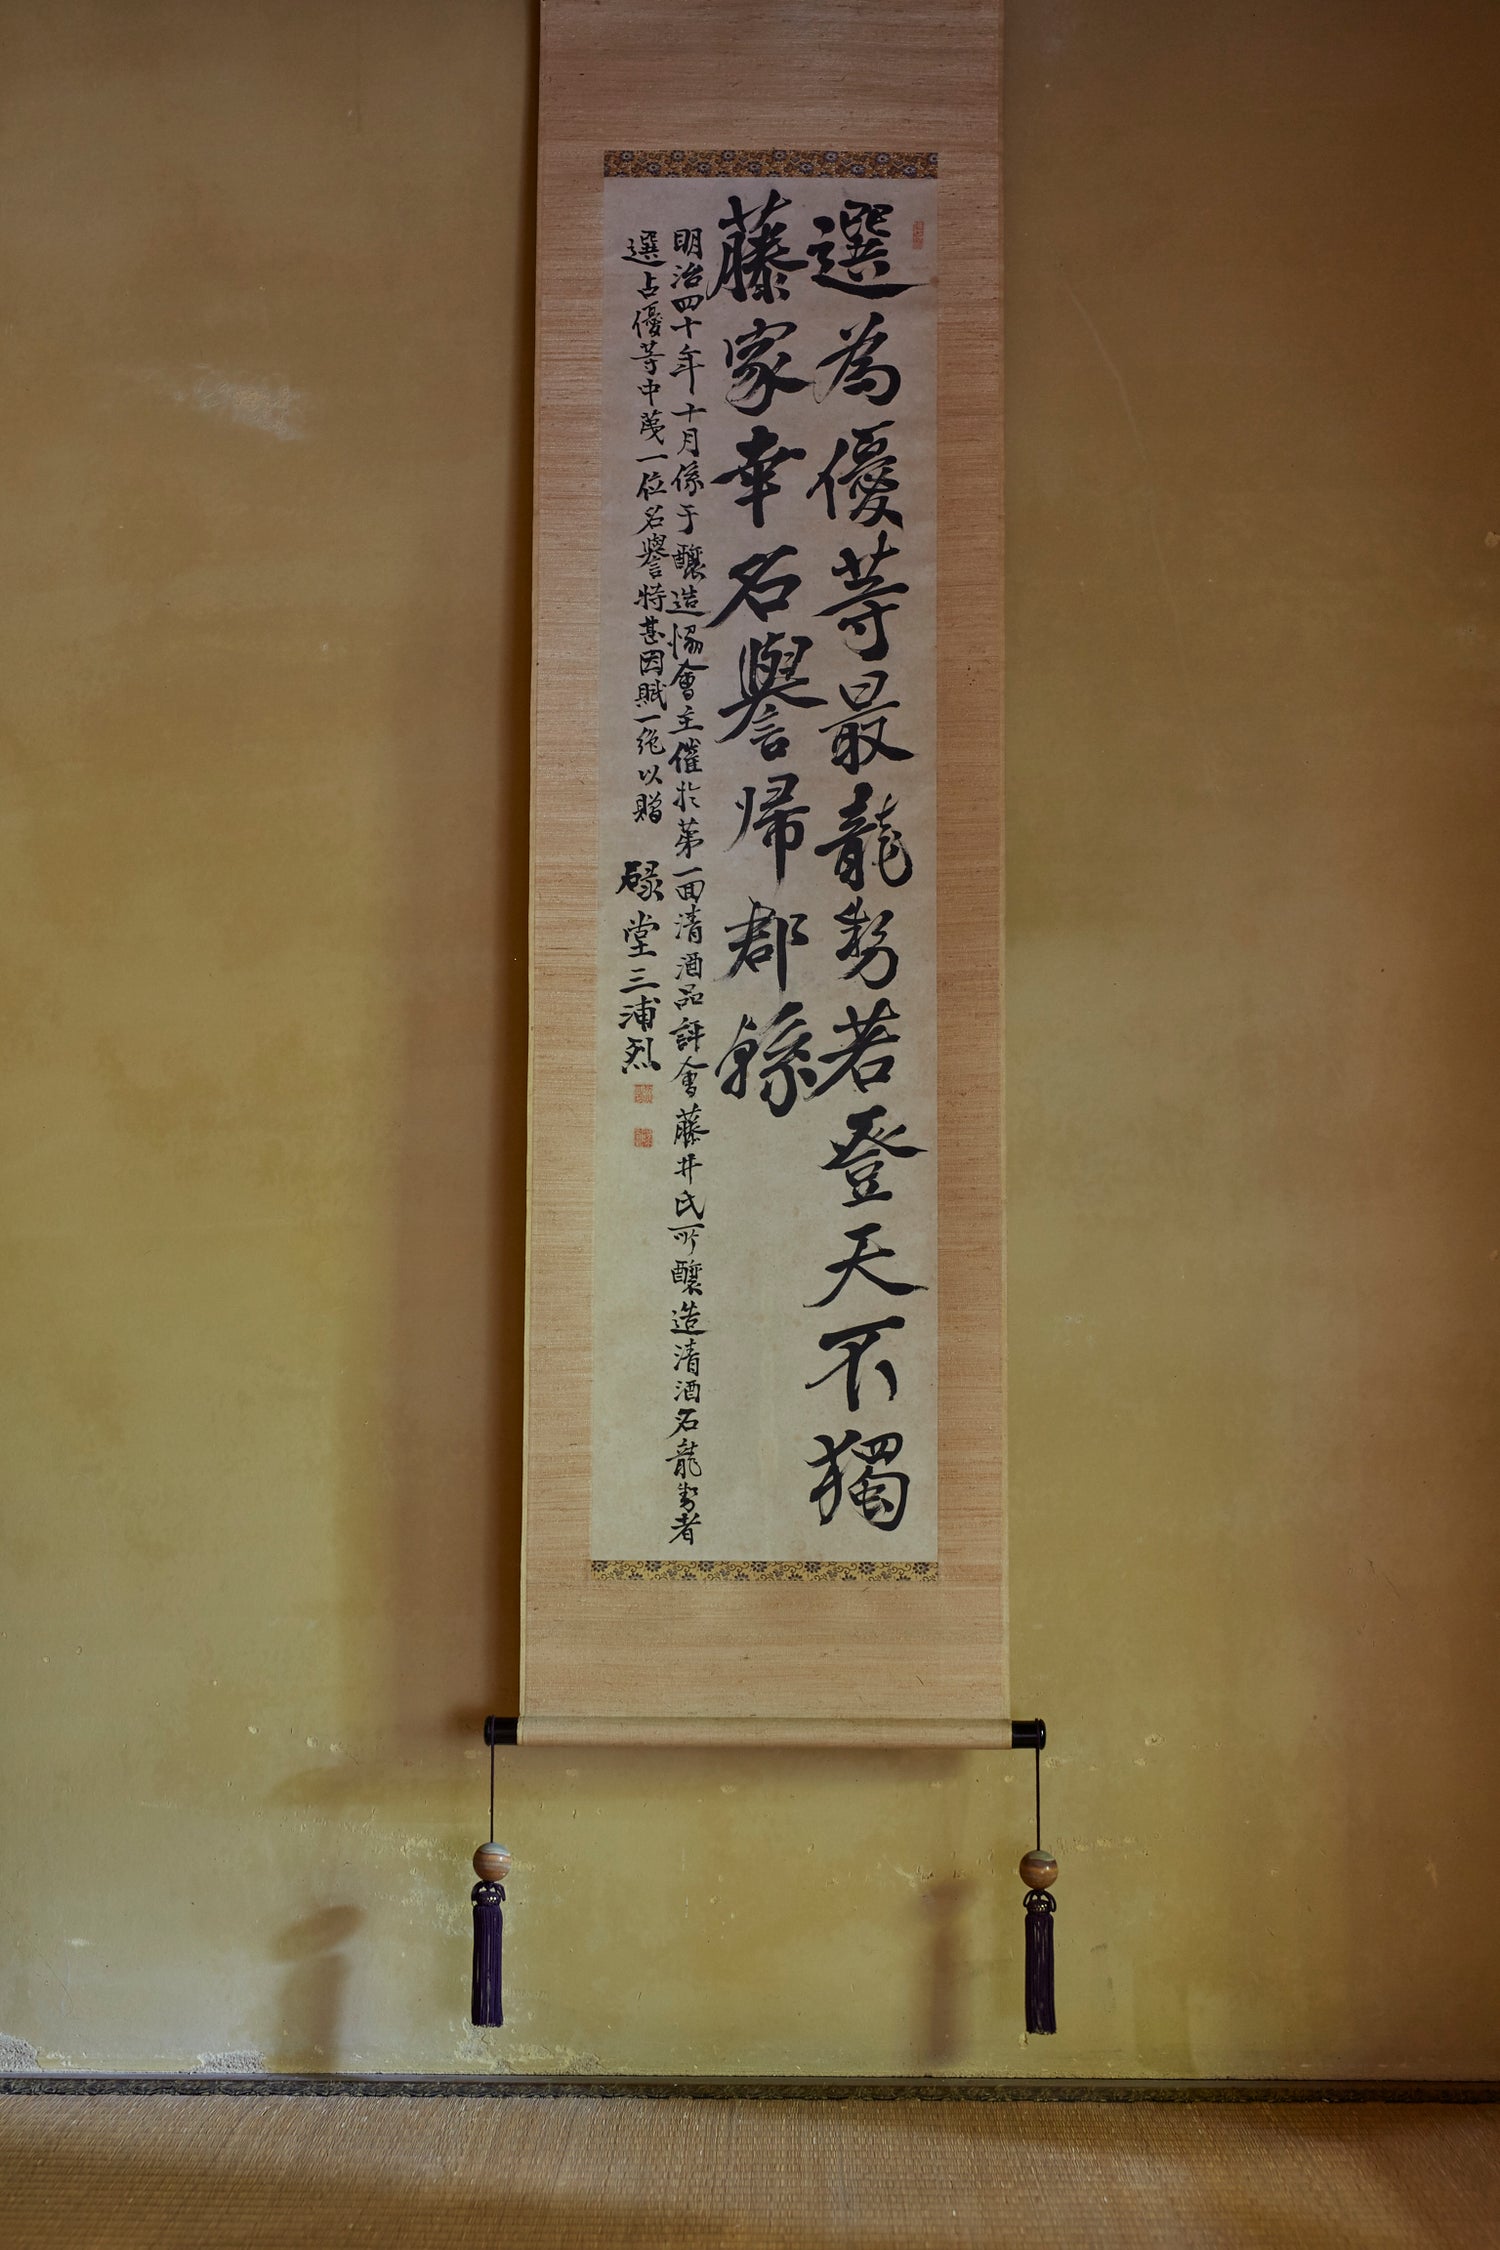 選為優等最龍勢若登天不獨
藤家幸名譽帰郡縣
明治四十年十月係于釀造協會主催於第一回清酒品評會藤井氏所釀造清酒名龍勢者
選占優等中第一位名譽特甚因賦一絶以贈 碌堂三浦烈